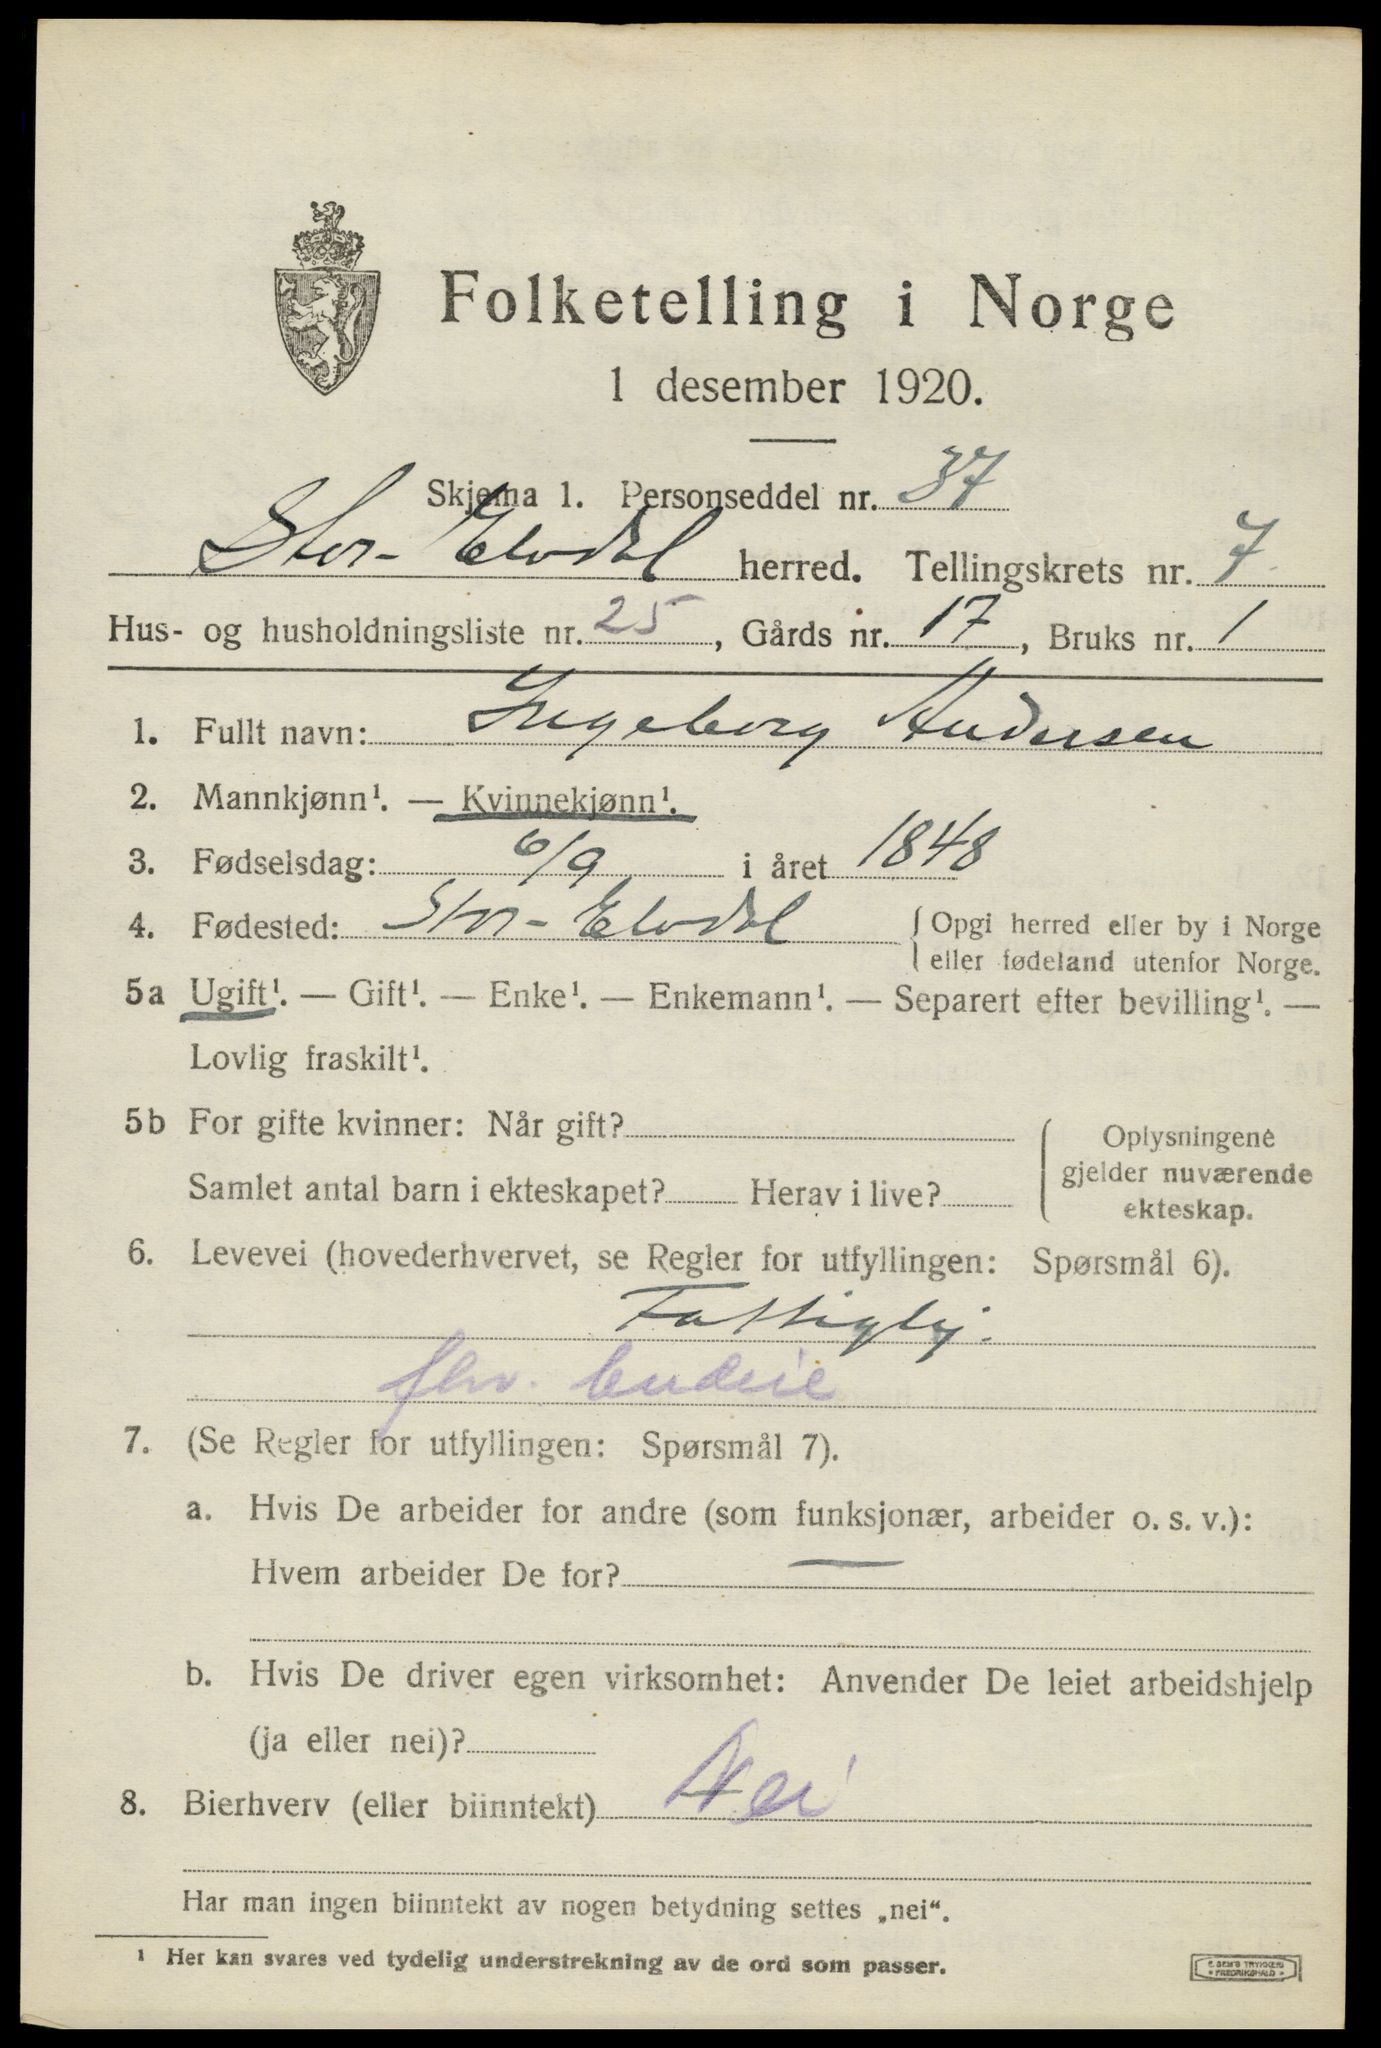 Folketelling i Norge
1 desember 1920.
Skjema 1. Personseddel nr. 37
Stor-Elvdal herred. Tellingskrets nr. 7
Hus- og husholdningsliste nr. 25, Gårds nr. 17, Bruks nr. 1
1. Fullt navn: Ingeborg Andersen
2. Mannkjønn¹. — Kvinnekjønn¹.
3. Fødselsdag: 6/9 i året 1848
4. Fødested: Stor-Elvdal { Opgi herred eller by i Norge
eller fødeland utenfor Norge.
5a Ugift¹. — Gift¹. — Enke¹. — Enkemann¹. — Separert efter bevilling¹. —
Lovlig fraskilt¹.
5b For gifte kvinner: Når gift?
Samlet antal barn i ekteskapet? Herav i live?
Oplysningene
gjelder nuværende
ekteskap.
6. Levevei (hovederhvervet, se Regler for utfyllingen: Spørsmål 6).
Fattiglj.
7. (Se Regler for utfyllingen: Spørsmål 7).
a. Hvis De arbeider for andre (som funksjonær, arbeider o. s. v.):
Hvem arbeider De for? —
b. Hvis De driver egen virksomhet: Anvender De leiet arbeidshjelp
(ja eller nei)?
8. Bierhverv (eller biinntekt) Nei
Har man ingen biinntekt av nogen betydning settes „nei“.
¹ Her kan svares ved tydelig understrekning av de ord som passer.
E. SEM'S TRYKKERI
FREDRIKSHALD